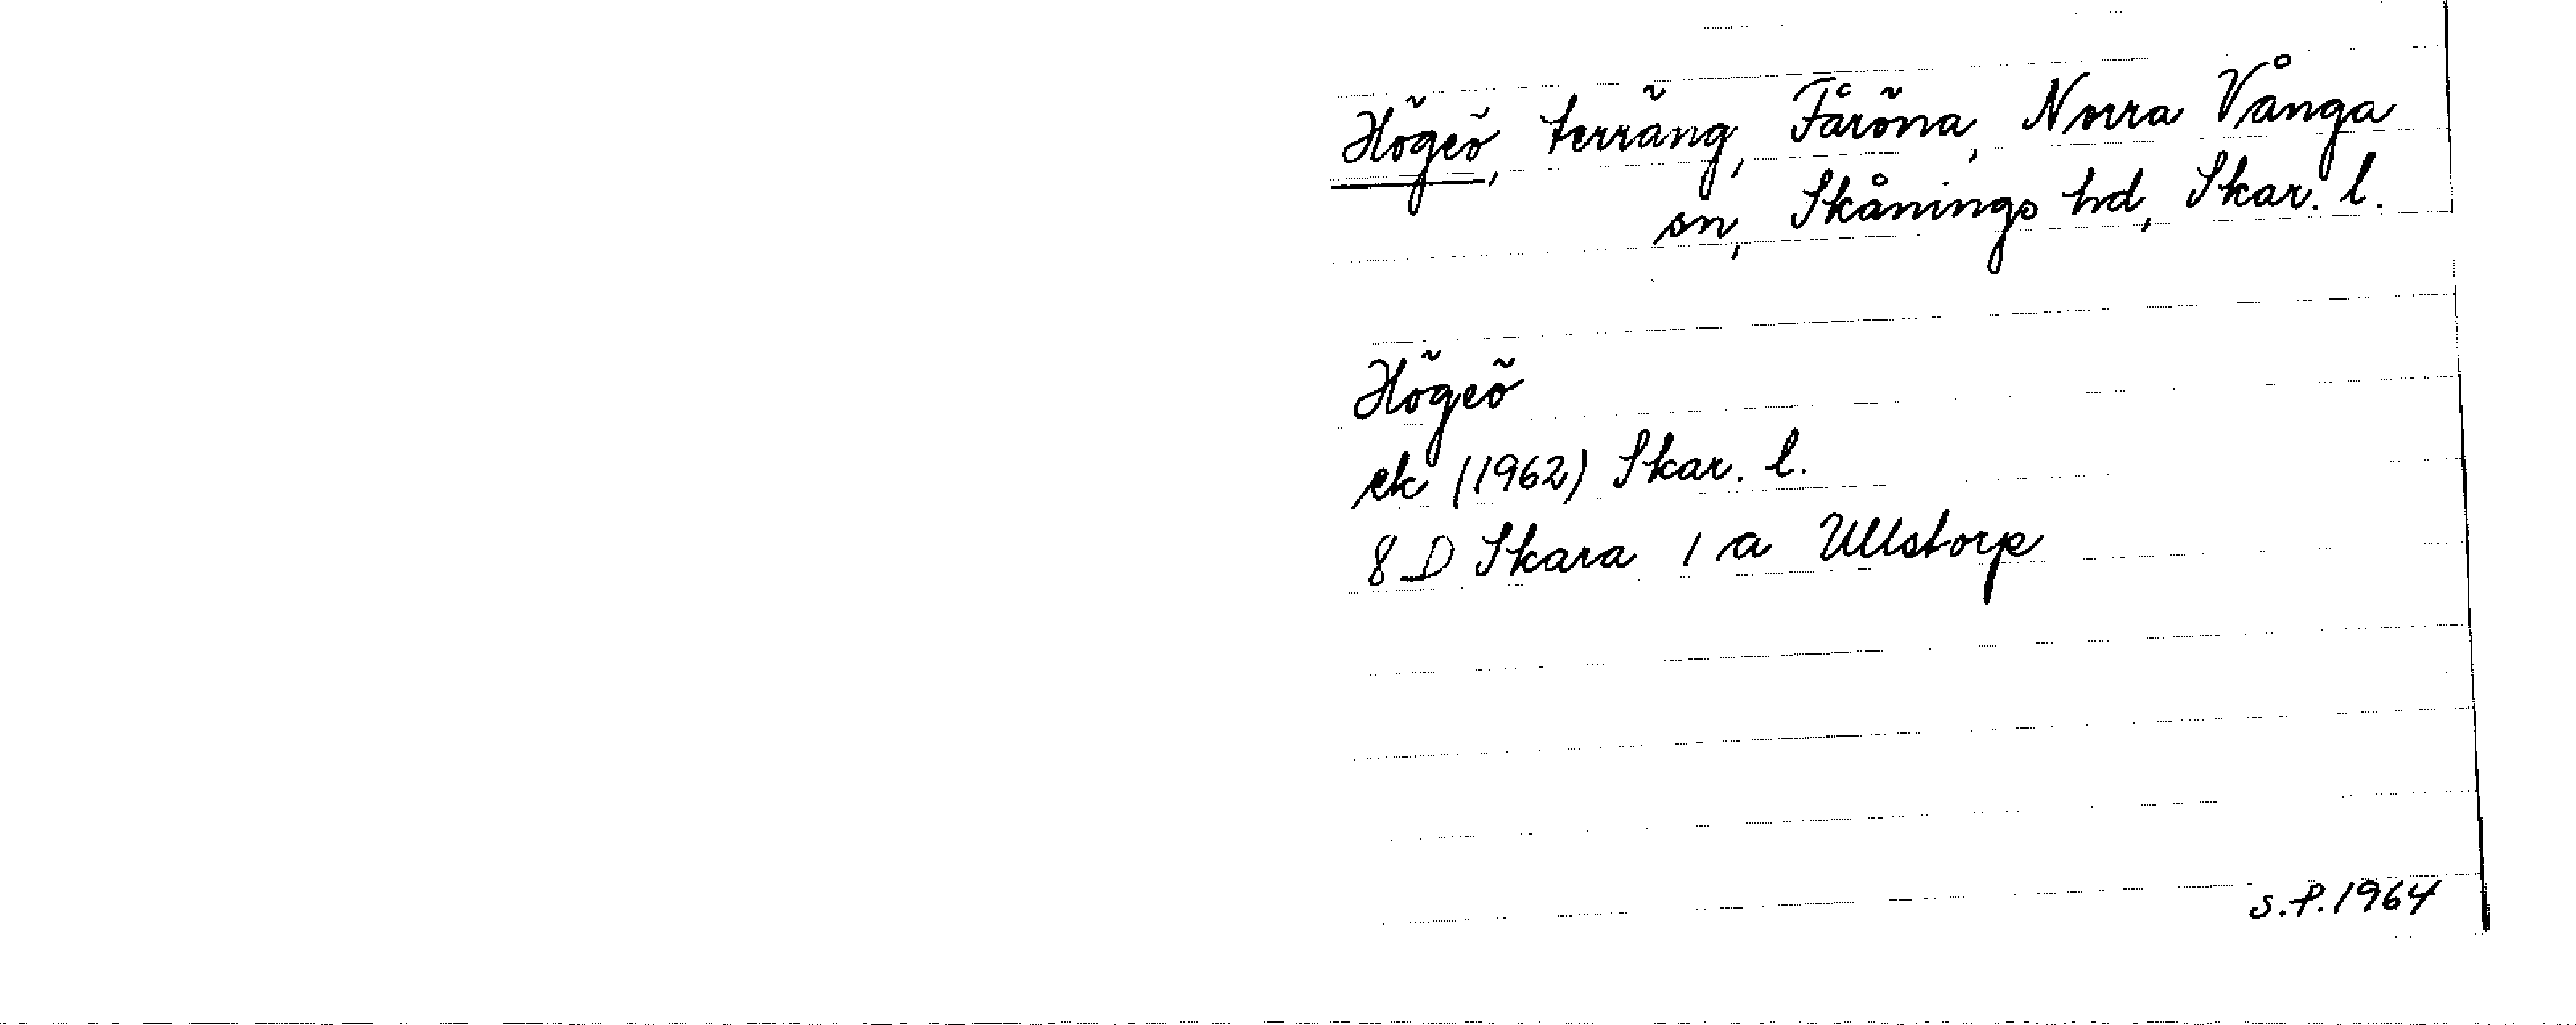 Högeö, terräng, Fåröna, Norra Vånga
sn, Skånings hd, Skar. l.
Högeö
ek (1962) Skar. l.
8 D Skara 1 a Ullstorp
S.P. 1964